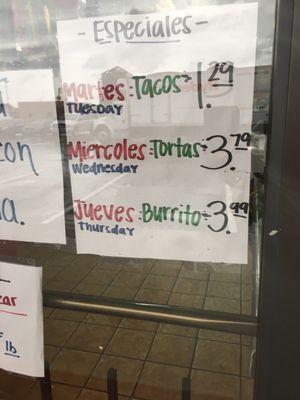 - Especiales -
Martes : Tacos - 1.29
Tuesday
Miercoles : Tortas - 3.79
Wednesday
Jueves : Burrito - 3.99
Thursday
a.
lb